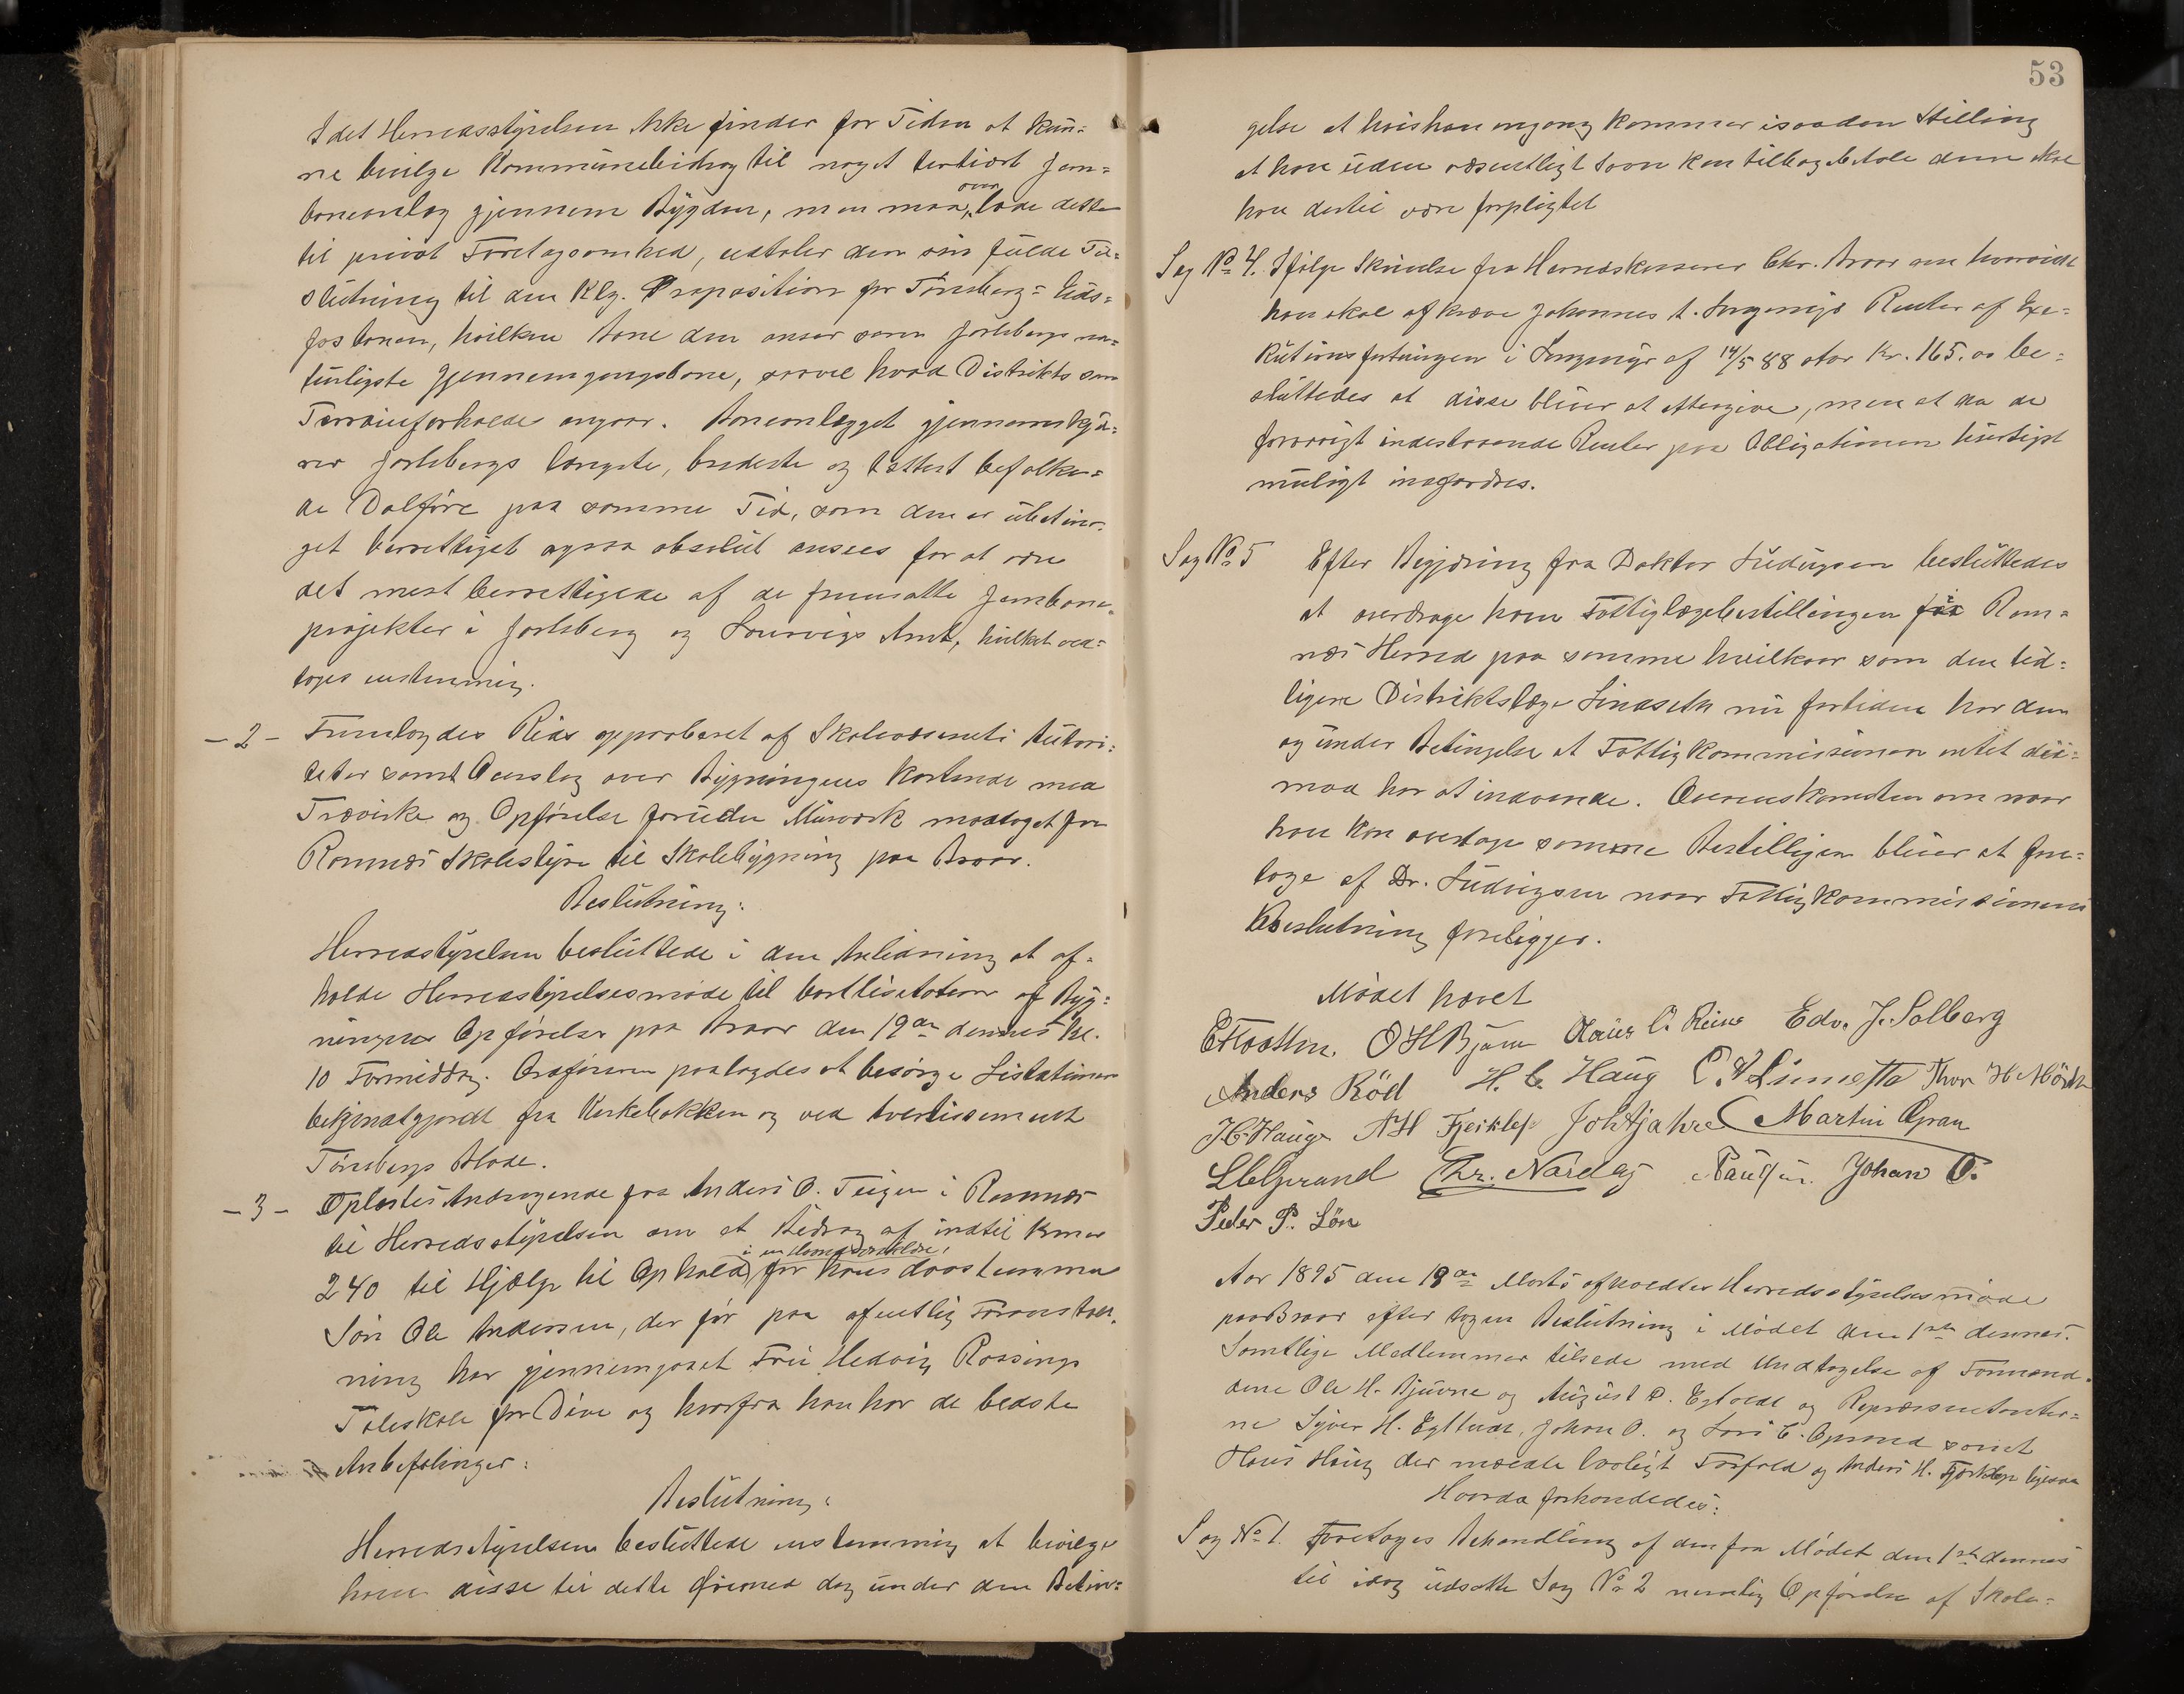 Idet Herredsstyrelsen ikke finder for Tiden at kun=
ne bevilge Kommunebidrag til noget tertiært Jern=
baneanlæg gjennem Bygden, men maa over lade dette
til privat Foretagsomhed, udtaler den sin fulde Til=
slutning til den Klg. Proposition for Tønsberg= Eids=
fosbanen, hvilken Bane den anser som Jarlsbergs na=
turligste Gjennemgangsbane, saavel hvad Distrikts som
Terrainforholde angaar. Baneanlægget gjennemskjæ=
rer Jarlsbergs længste, bredeste og tættest befolke=
de Dalføre paa samme Tid, som den er ubetin=
get berettiget ogsaa absolut ansees for at være
det mest berettigede af de fremsatte Jernbane=
projekter i Jarlsberg og Laurvigs Amt, hvilket ved=
toges enstemmig.
- 2 - Fremlagdes Rids approberet af Skolevæsenets Autori=
teter samt Overslag over Bygningens Kostende med
Trævirke og Opførelse foruden Murværk modtaget fra
Ramnæs Skolestyre til Skolebygning paa Braar.
Beslutning:
Herredstyrelsen besluttede i den Anledning at af=
holde Herredstyrelsesmøde til bortlicitation af Byg=
ningens Opførelse paa Braar den 19de dennes Kl.
10 Formiddag. Ordføreren paalagdes at besørge Licitationen
bekjendtgjordt fra Kirkebakken og ved Avertissement
Tønsbergs Blade.
- 3 - Oplæstes Andragende fra Anders O. Teigen i Ramnæs
til Herredsstyrelsen om et Bidrag af indtil kroner
i en
240 til Hjælp til Ophold for hans døvstumme
Søn Ole Andersen, der før paa ofentlig Foranstalt=
ning har gjennemgaaet Frü Hedvig Rossings
Taleskole for Døve og hvorfra han har de bedste
Anbefalinger:
Beslutning:
Herredsstyrelsen besluttede enstemmig at bevilge
ham disse til dette Øiemed dog under den Betin=
53
gelse at hvis han engang kommer isaadan Stilling
at han uden væsentligt Savn kan tilbagebetale dem skal
han dertil være forpligtet
Sag No 4. Ifølge Skrivelse fra Herredskasserer Chr. Braar om hvorvidt
han skal afkræve Johannes t. Langmyr Renter af Exe=
kutionsfortningen i Langmyr af 14/5 88 stor Kr. 165.00 be=
sluttedes at disse bliver at eftergive, men at da de
forøvrigt indestaaende Renter paa Obligationen hurtigst
muligt inafordres.
Sag No 5 Efter Begjæring fra Doktor Ludvigsen besluttedes
at overdrage ham Fattiglægebestillingen i Ram=
næs Herred paa samme hvilkaar som den tid=
ligere Distriktslæge Lindseth nu fortiden har den
og under Betingelse at Fattigkommissionen intet der=
mod har at indvende. Overenskomsten om naar
han kan overtage samme Bestilligen bliver at fore=
tage af Dr. Ludvigsen naar Fattigkommissionens
Beslutning foreligger.
Mødet hævet
OHBjüne Edv. J. Solberg
Anders Röd H. C. Haug C. A. Linnestta Thor H Mörk
H. Hauge AH Fjeiklep Martin Gran
Chr. Nardag Paulsen. Johan O.
Peder P. Lön
Aar 1895 den 19de Marts afholdtes Herredsstyrelsesmøde
paa Braar efter tagen Beslutning i Mødet den 1ste dennes.
Samtlige Medlemmer tilsede med Undtagelse af Formænd=
dene Ole H. Bjuvne og August O. og Repræsentanter=
ne Syver H. Johan O. og Lars C. Opsand samt
Hans Haug der meldte lovligt Forfald og Anders H. Fjerklep ligesaa
Hvorda forhandledes:
Sag No 1. Foretoges Behandling af den fra Mødet den 1ste dennes
til idag udsatte Sag No 2 nemlig Opførelse af Skole=